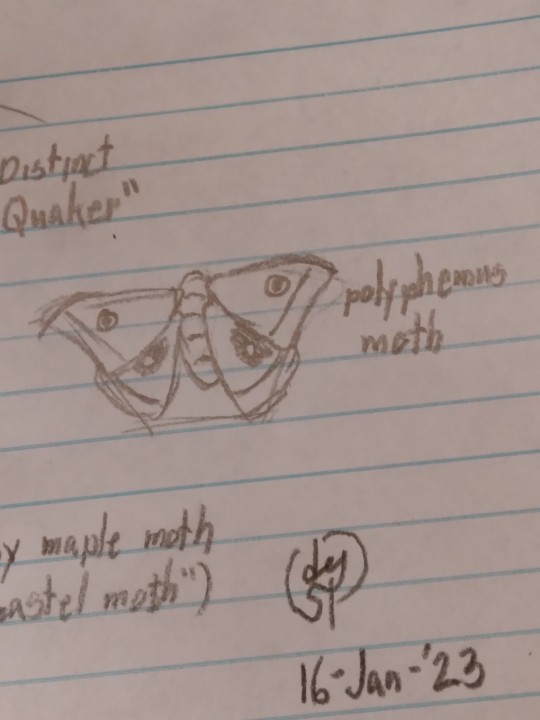 Distinct
Quaker"
polyphemus
moth
y maple moth
astel moth")
16-Jan-'23